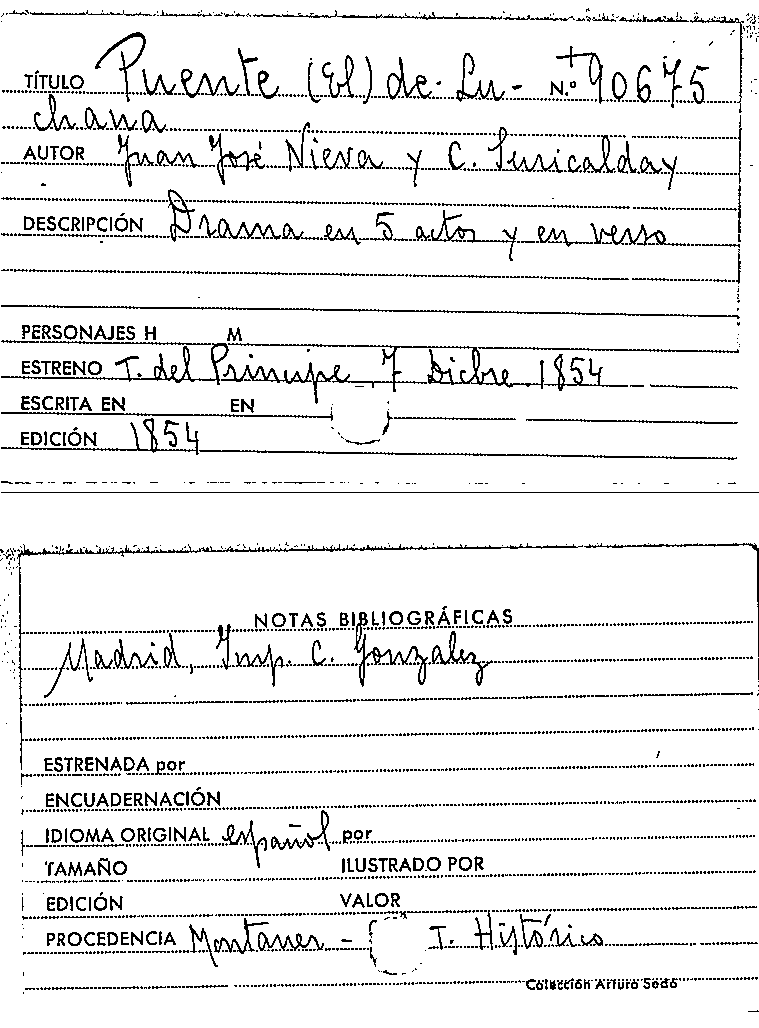 TÍTULO Puente (El) de Lu- N.º 90675
chana
AUTOR Juan José Nieva y C. Suricalday
DESCRIPCIÓN Drama en 5 actos y en verso
PERSONAJES H M
ESTRENO T. del Principe, 7 Dicbre 1854
ESCRITA EN EN
EDICIÓN 1854
NOTAS BIBLIOGRÁFICAS
Madrid, Imp. C. Gonzalez
ESTRENADA por
ENCUADERNACIÓN
IDIOMA ORIGINAL español por
TAMAÑO ILUSTRADO POR
EDICIÓN VALOR
PROCEDENCIA Montaner - T. Histórico
Colección Arturo Sedó